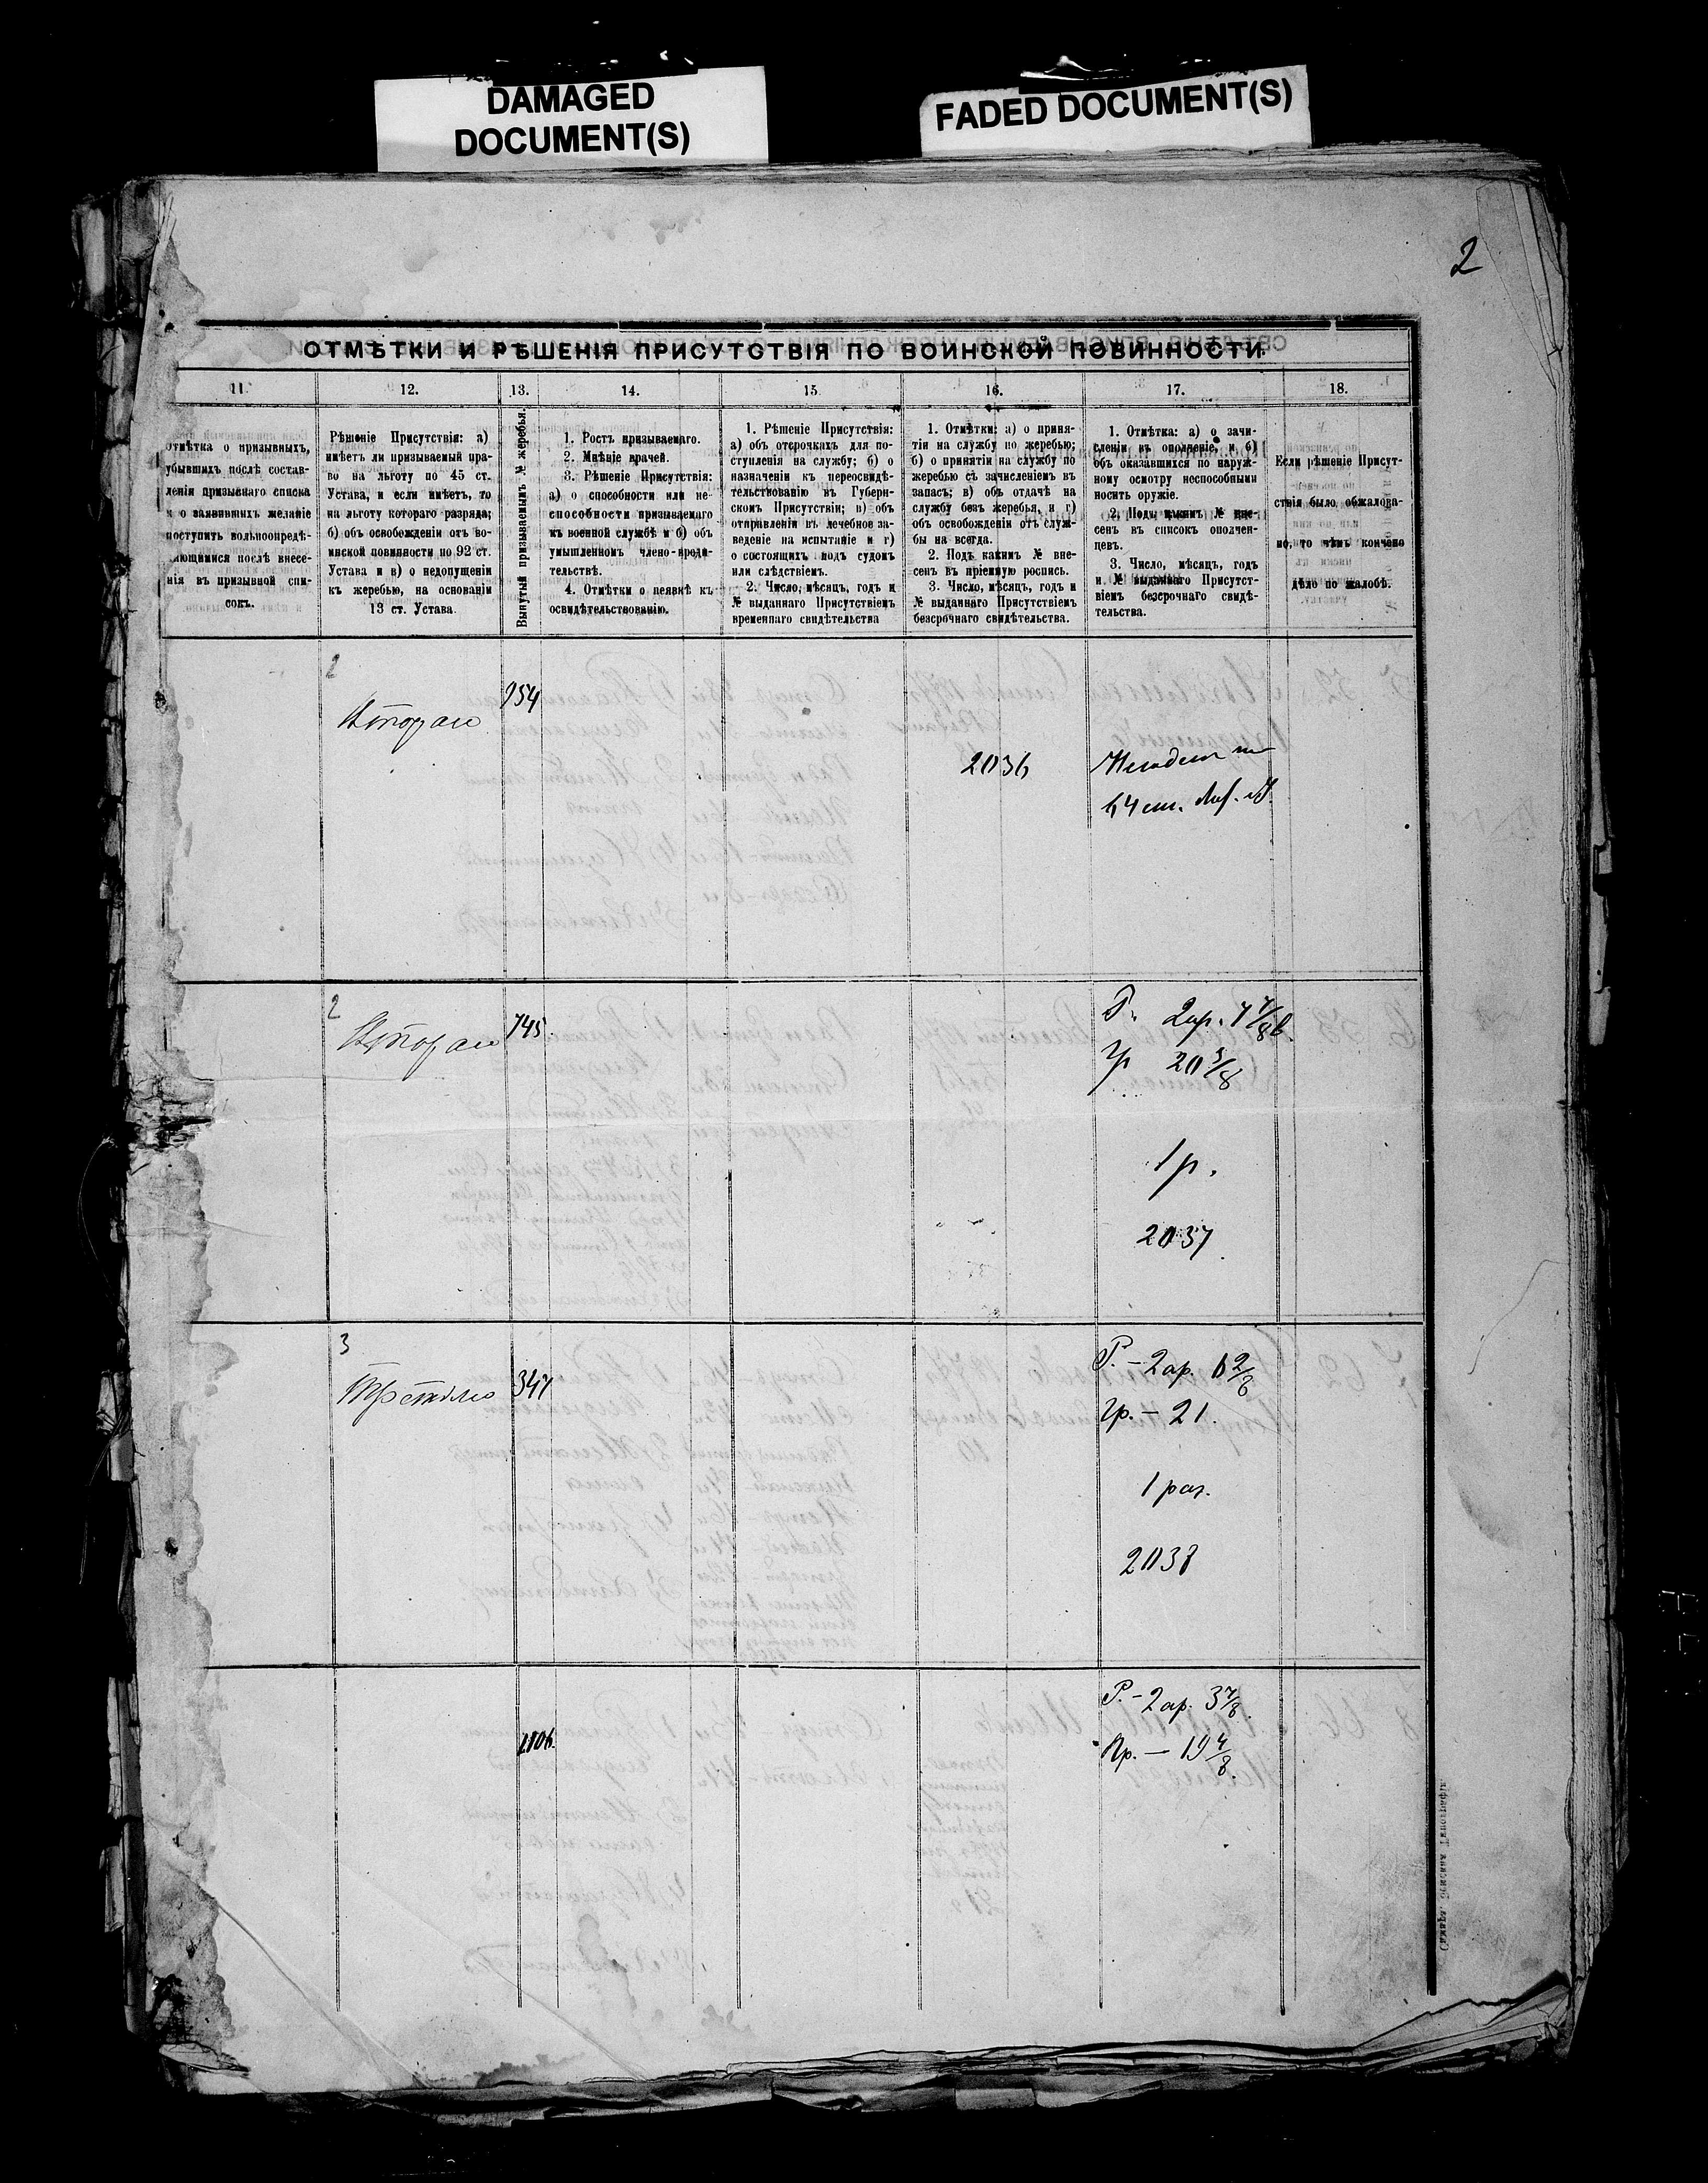 DAMAGED
DOCUMENT(S)
FADED DOCUMENT(S)
2
ОТМѢТКИ И РѢШЕНІЯ ПРИСУТСТВІЯ ПО ВОИНСКОЙ ПОВИННОСТИ.
11.
12.
13.
14.
15
16.
17.
18.
Отмѣтка о призывныхъ,
убывшихъ послѣ состав-
ленія призывнаго списка
и о заявившихъ желаніе
поступить вольноопредѣ-
ляющимися послѣ внесе-
нія въ призывной спи-
сокъ.
Рѣшеніе Присутствія: а)
имѣетъ ли призываемый пра-
во на льготу по 45 ст.
Устава, и если имѣетъ, то
на льготу котораго разряда;
б) объ освобожденіи отъ во-
инской повинности по 92 ст.
Устава и в) о недопущеніи
къ жеребью, на основаніи
13 ст. Устава.
Вынутый призываемымъ № жеребья.
1. Ростъ призываемаго.
2. Мнѣніе врачей.
3. Рѣшеніе Присутствія:
а) о способности или не-
способности призываемаго
къ военной службѣ и б) объ
умышленномъ члено-вреди-
тельствѣ.
4. Отмѣтки о неявкѣ къ
освидѣтельствованію.
1. Рѣшеніе Присутствія:
а) объ отсрочкахъ для по-
ступленія на службу; б) о
назначеніи къ переосвидѣ-
тельствованію въ Губерн-
скомъ Присутствіи; в) объ
отправленіи въ лечебное за-
веденіе на испытаніе и г)
о состоящихъ подъ судомъ
или слѣдствіемъ.
2. Число, мѣсяцъ, годъ и
№ выданнаго Присутствіемъ
временнаго свидѣтельства
1. Отмѣтки: а) о приня-
тіи на службу по жеребью;
б) о принятіи на службу по
жеребью съ зачисленіемъ въ
запасъ; в) объ отдачѣ на
службу безъ жеребья, и г)
объ освобожденіи отъ служ-
бы на всегда.
2. Подъ какимъ № вне-
сенъ въ пріемную роспись.
3. Число, мѣсяцъ, годъ и
№ выданнаго Присутствіемъ
безсрочнаго свидѣтельства.
1. Отмѣтка: а) о зачи-
сленіи въ ополченіе, и б)
объ оказавшихся по наруж-
ному осмотру неспособными
носить оружіе.
2. Подъ какимъ № вне-
сенъ въ списокъ ополчен-
цевъ.
3. Число, мѣсяцъ, годъ
и № выданнаго Присутст-
віемъ безсрочнаго свидѣ-
тельства.
Если рѣшеніе Присут-
ствія было обжалова-
но, то чѣмъ кончено
дѣло по жалобѣ.
2
Вторая
954
2036
64 ст.
2
Вторая
745
Р. 2 ар. 7 7/8 в.
Гр 20 3/8
1 р.
2037
3
Третью
347
Р. – 2 ар. 6 2/8
Гр. – 21.
1 раз.
2038
1106.
Р. – 2 ар. 3 7/8.
Гр. – 19 4/8.